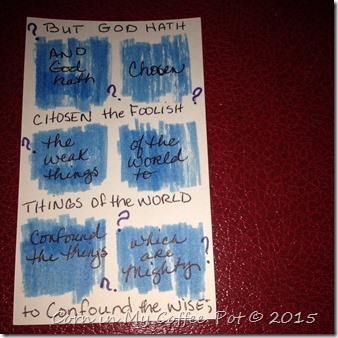 ? BUT GOD HATH
AND
God
hath
Chosen
? ?
CHOSEN the FOOLISH
? the
weak
things
of the
world
to
THINGS of the WORLD
?
Confound
the things
which
are
Mighty
?
?
to Confound the WISE;
Corn in My Coffee Pot © 2015